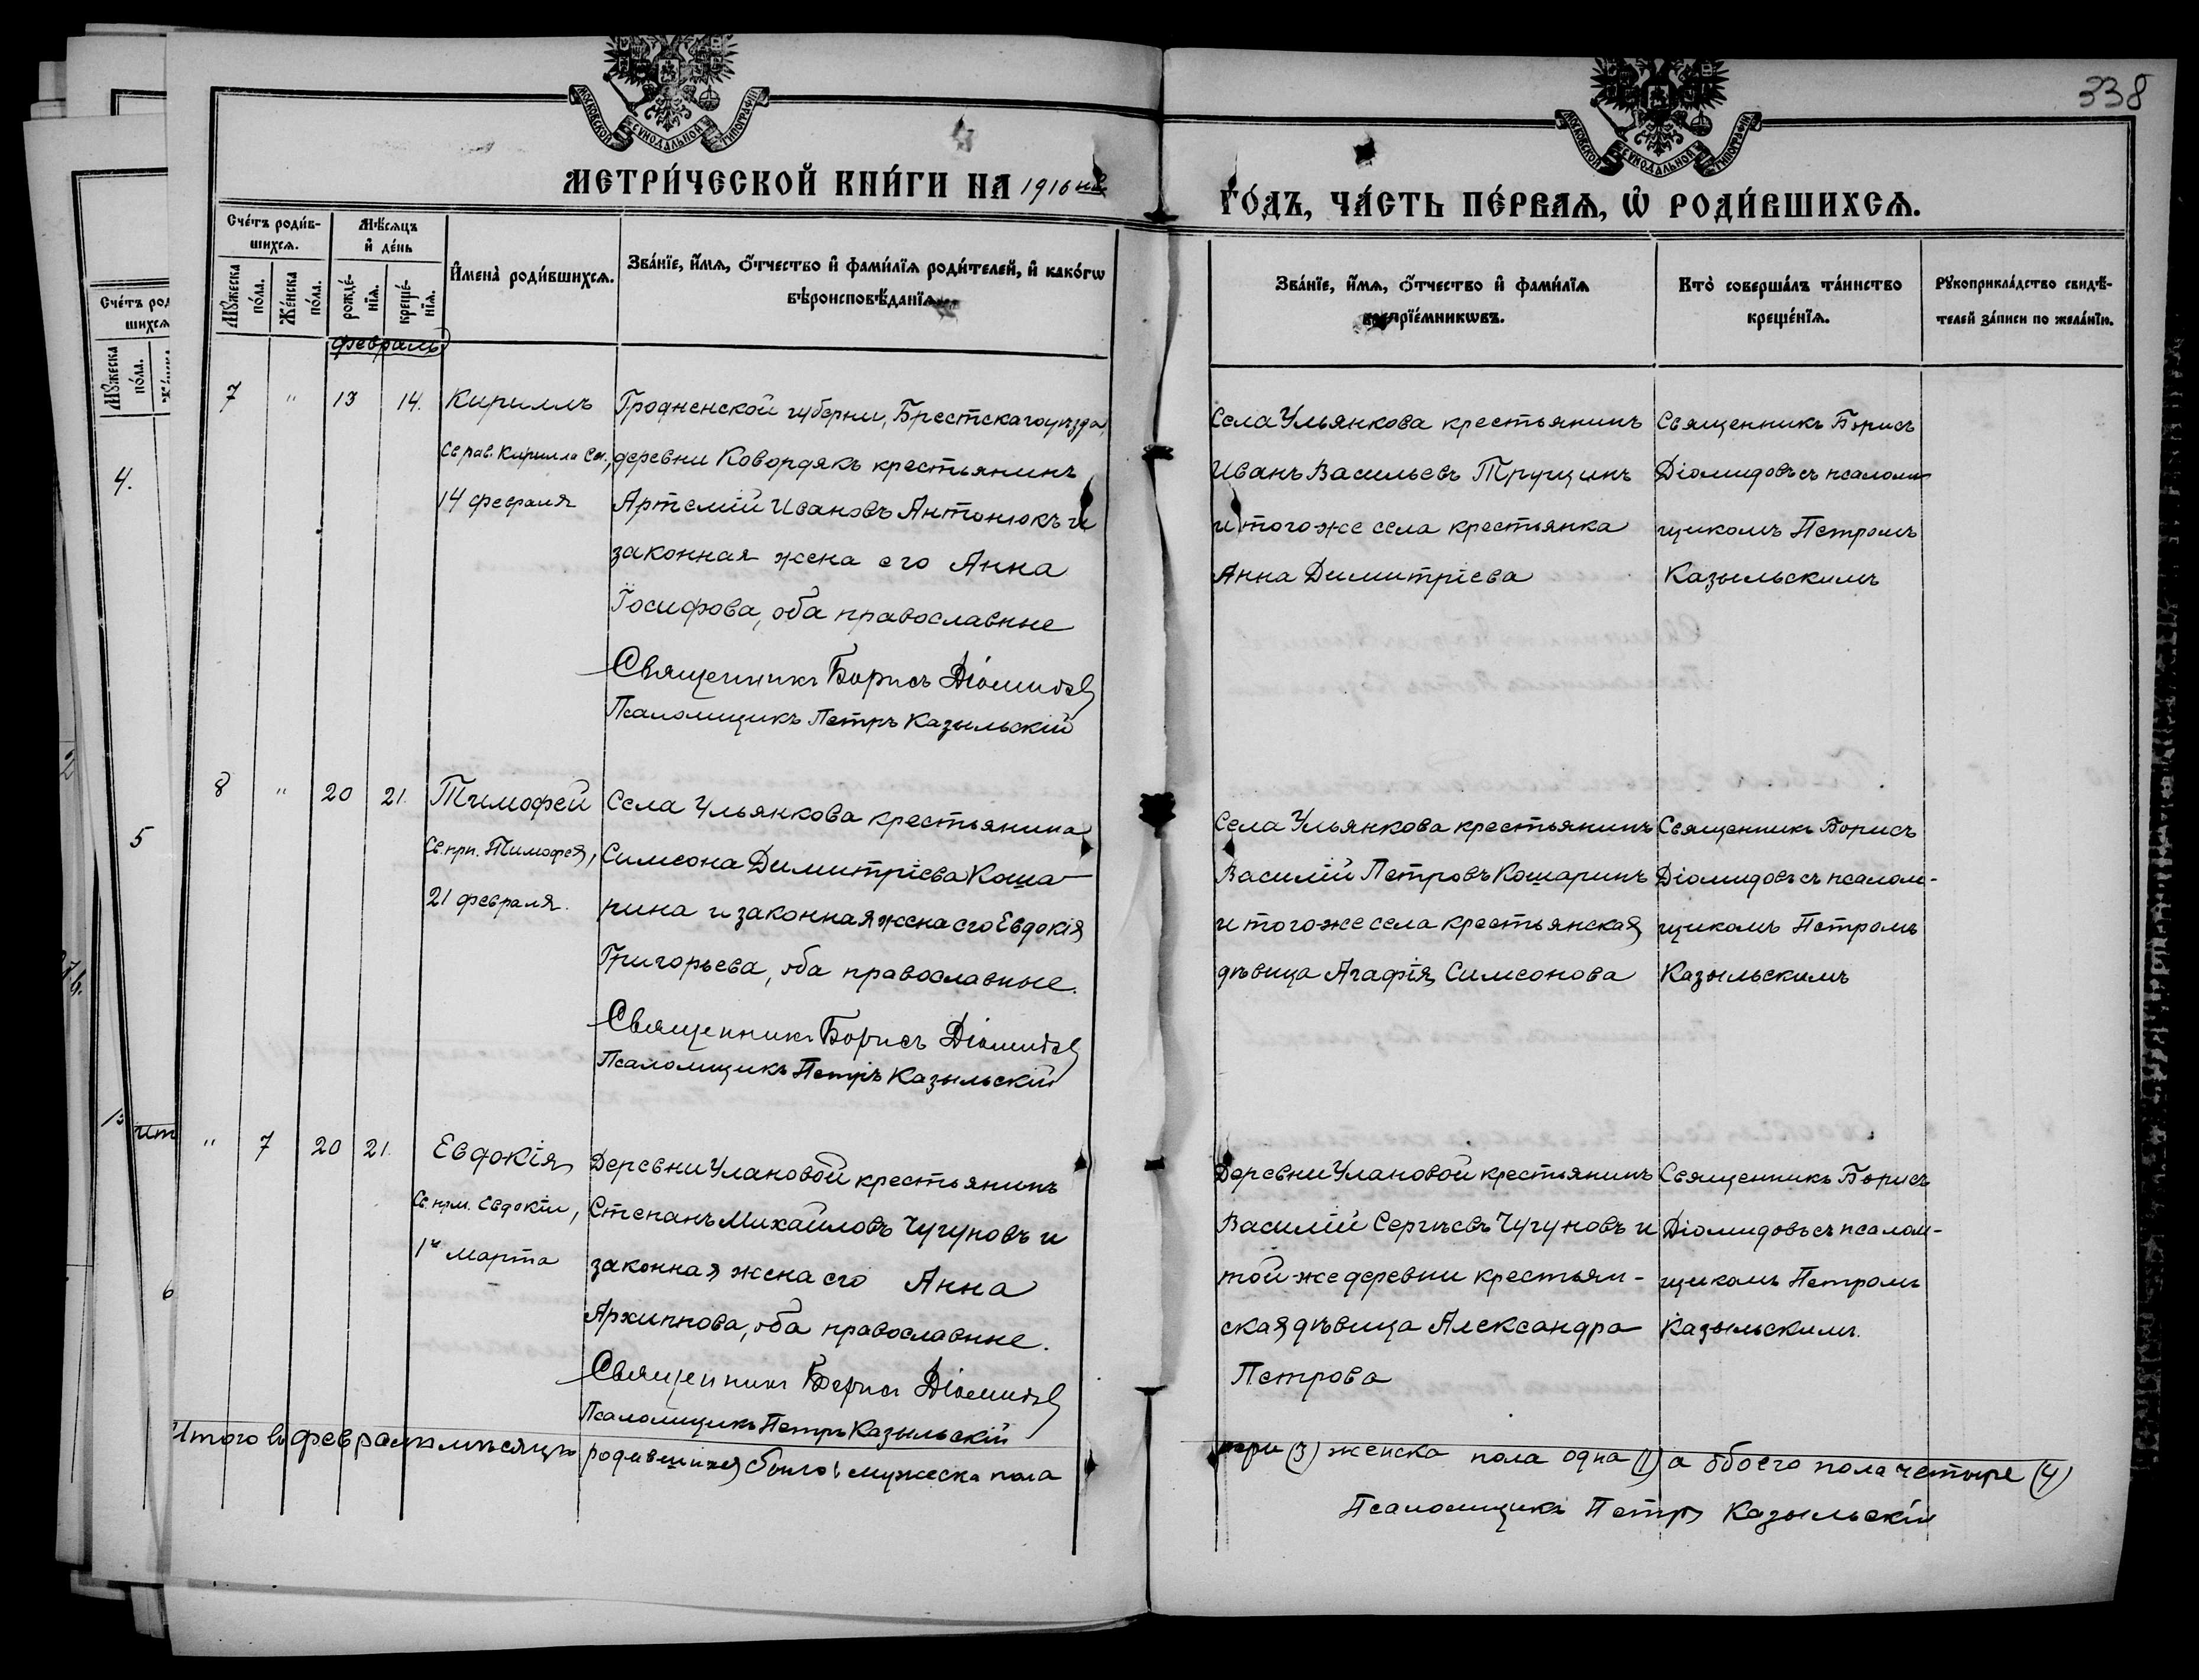 338
МОСКОВСКОЙ СѴНОДАЛЬНОЙ ТИПОГРАФІИ
МОСКОВСКОЙ СѴНОДАЛЬНОЙ ТИПОГРАФІИ
МЕТРИ́ЧЕСКОЙ КНИ́ГИ НА 1916 ый
ГО́ДЪ, ЧА́СТЬ ПЕ́РВАѦ, Ѡ҆ РОДИ́ВШИХСѦ.
Сче́тъ роди́в-
шихсѧ.
Мꙋ́жеска по́ла.
Же́нска по́ла.
Мѣ́сѧцъ
и҆ де́нь
рожде́-
нїѧ.
креще́-
нїѧ.
И҆мена̀ роди́вшихсѧ.
Зва́нїе, и҆́мѧ, ѻ҆́тчество и҆ фами́лїѧ роди́телей, и҆ како́гѡ
вѣроисповѣ́данїѧ.
Зва́нїе, и҆́мѧ, ѻ҆́тчество и҆ фами́лїѧ
воспрїе́мникѡвъ.
Кто̀ соверша́лъ та́инство
креще́нїѧ.
Рꙋкоприкла́дство свидѣ́-
телей за́писи по жела́нїю.
Февраль
7 " 13 14. Кириллъ
Св. рав. Кирилла
14 февраля
Гродненской губерни, Брестскаго уѣзда,
деревни Ковордякъ крестьянинъ
Артемій Ивановъ Антонюкъ и
законная жена его Анна
Іосифова, оба православные
Священникъ Борисъ Діомидовъ
Псаломщикъ Петръ Казыльскій
Села Ульянкова крестьянинъ
Иванъ Васильевъ Трущинъ
и того-же села крестьянка
Анна Димитріева
Священникъ Борисъ
Діомидовъ съ псалом-
щикомъ Петромъ
Казыльскимъ
8 " 20 21. Тимофей
Св. прп. Тимофея,
21 февраля.
Села Ульянкова крестьянина
Симеона Димитріева Коша-
рина и законная жена его Евдокія
Григорьева, оба православные.
Священникъ Борисъ Діомидовъ
Псаломщикъ Петръ Казыльскій
Села Ульянкова крестьянинъ
Василій Петровъ Кошаринъ
и того-же села крестьянская
дѣвица Агафія Симеонова
Священникъ Борисъ
Діомидовъ съ псалом-
щикомъ Петромъ
Казыльскимъ
" 7 20 21. Евдокія
Св. прм. Евдокіи,
1го марта
Деревни Улановой крестьянинъ
Степанъ Михайловъ Чугуновъ и
законная жена его Анна
Архиппова, оба православные.
Священникъ Борисъ Діомидовъ
Псаломщикъ Петръ Казыльскій
Деревни Улановой крестьянинъ
Василій Сергѣевъ Чугуновъ и
той-же деревни крестьян-
ская дѣвица Александра
Петрова
Священникъ Борисъ
Діомидовъ съ псалом-
щикомъ Петромъ
Казыльскимъ.
Итого въ февралѣ мѣсяцѣ родившихся было: мужеска пола
три (3) женска пола одна (1) а обоего пола четыре (4)
Псаломщикъ Петръ Казыльскій
Сче́тъ
шихсѧ
Мꙋ́жеска по́ла.
4.
5
6